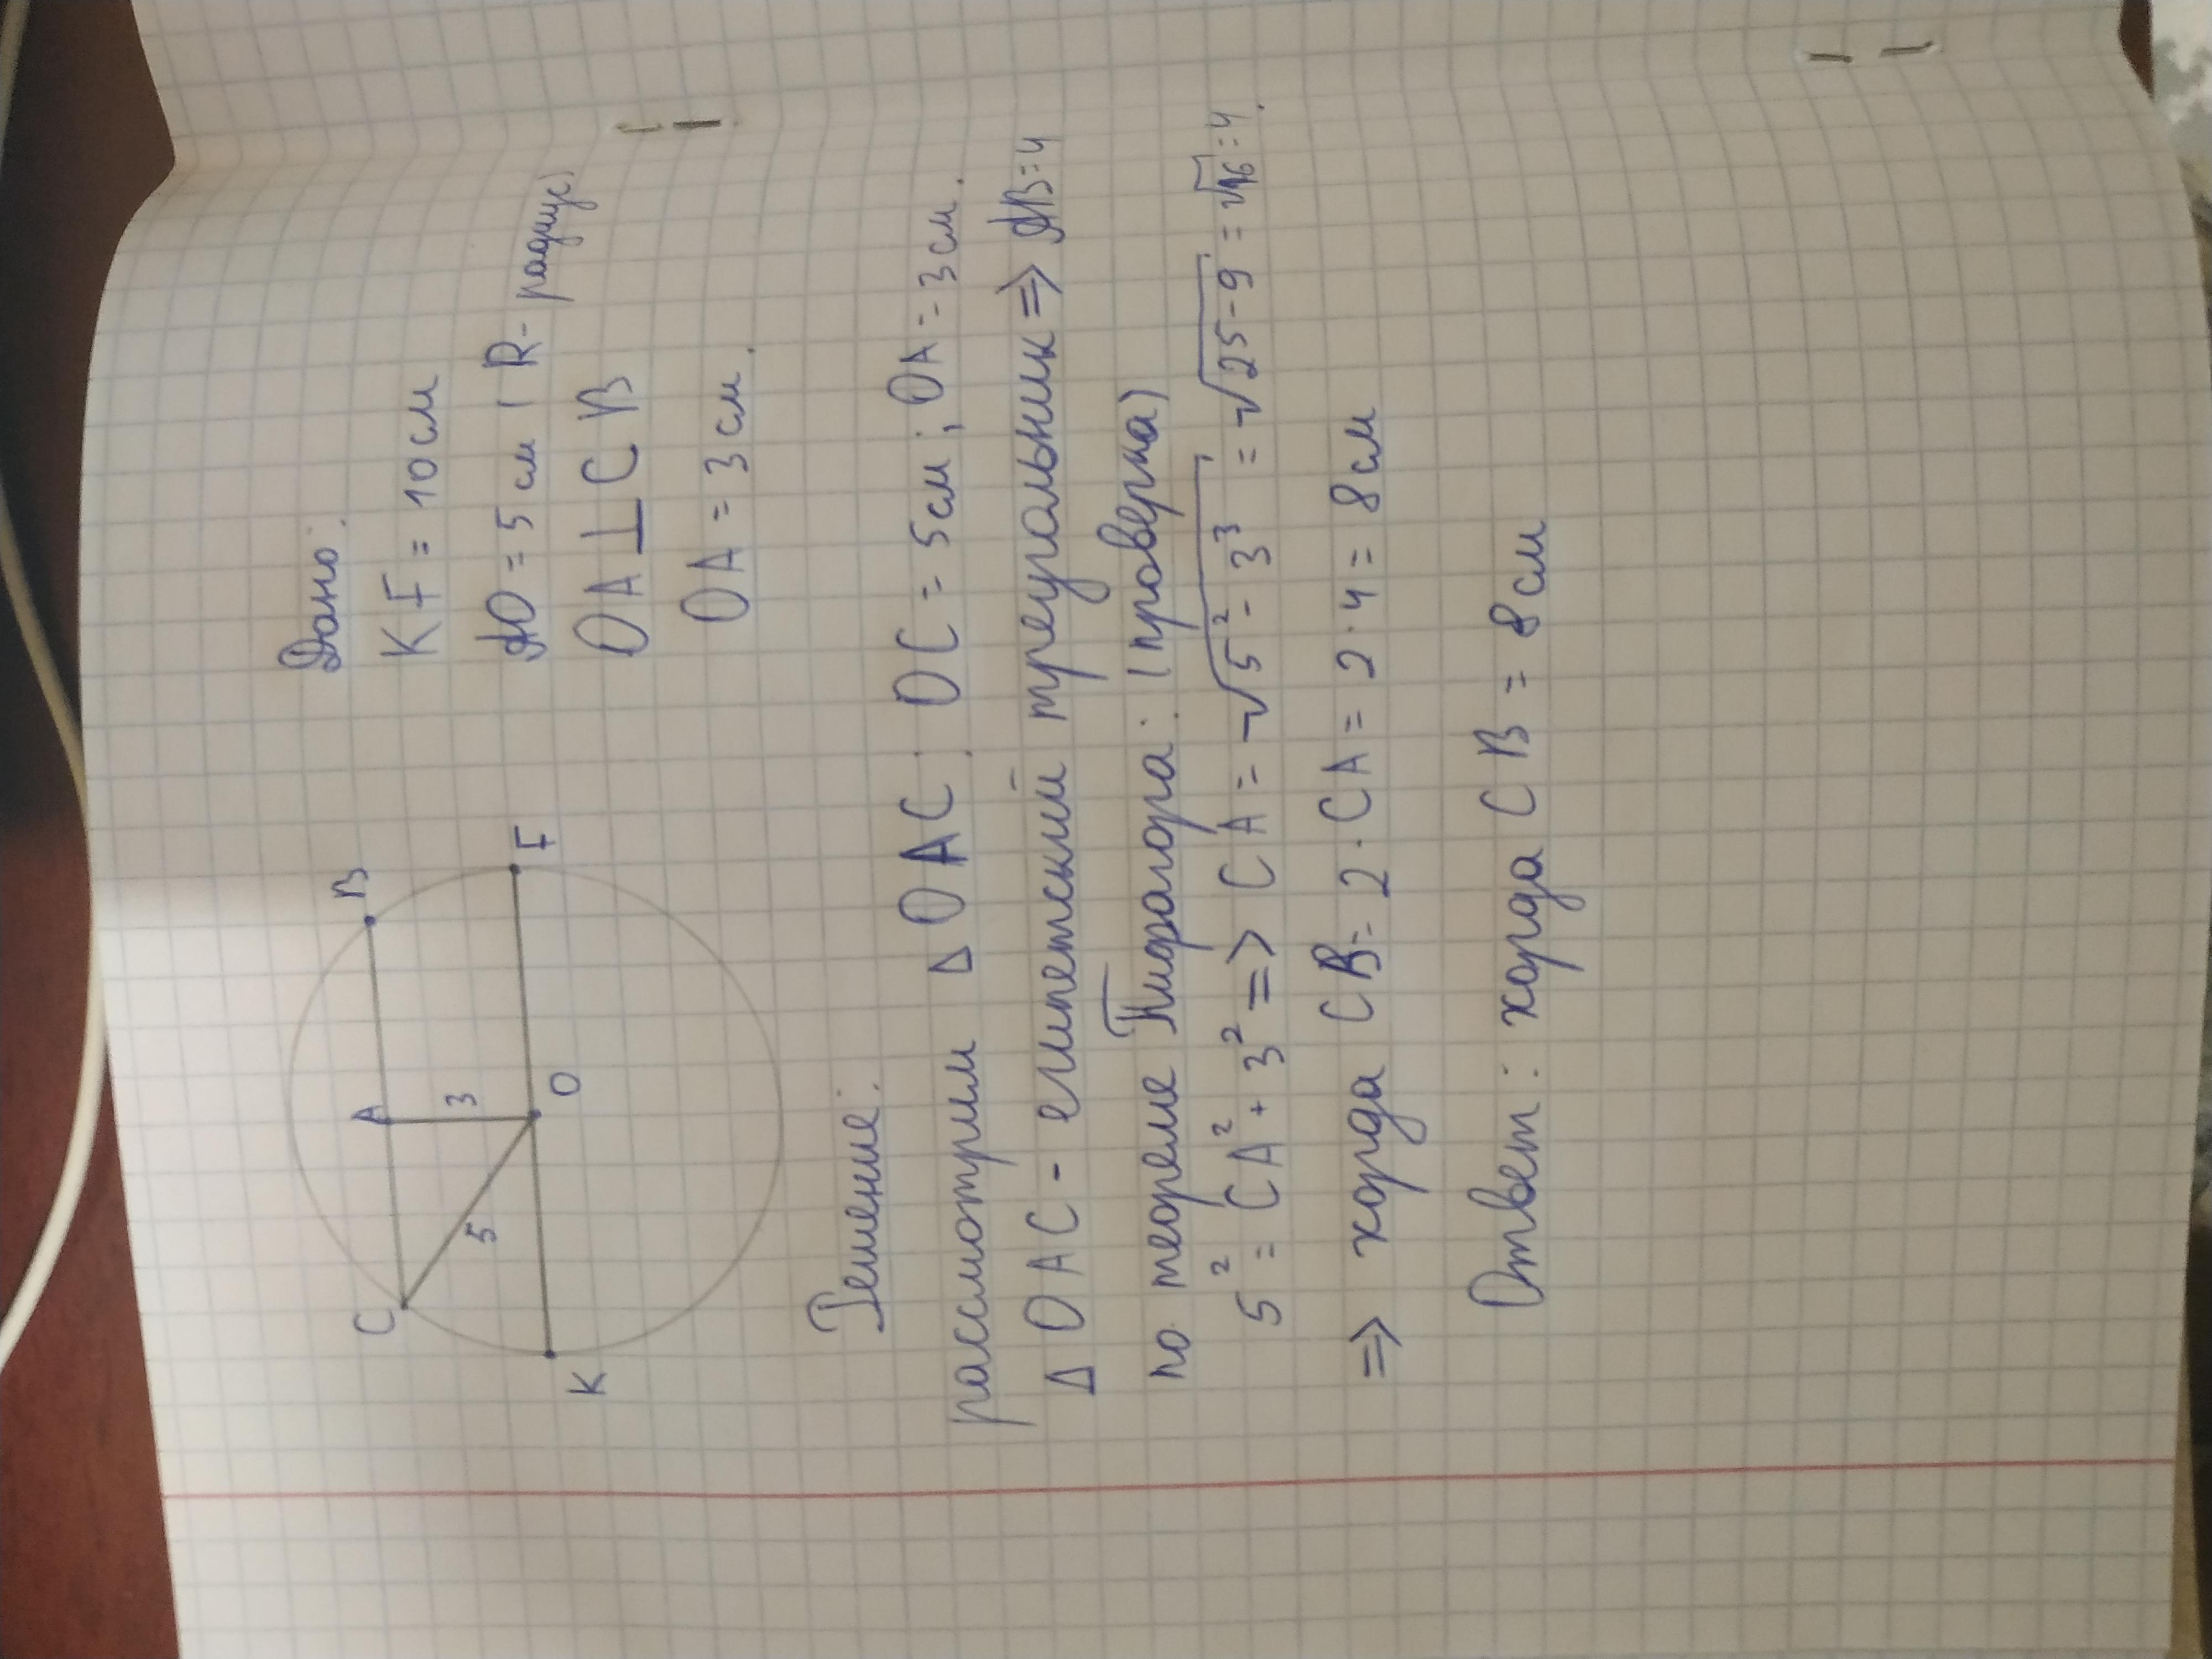 C
A
B
5
3
K
O
F
Дано:
KF = 10 см
AO = 5 см ( R - радиус)
OA ⊥ CB
OA = 3 см.
Решение:
рассмотрим △ OAC: OC = 5 см; OA = 3 см.
△ OAC - египетский треугольник => AB = 4
по теореме Пифагора: (проверка)
5² = CA² + 3² => CA = √5² - 3³ = √25-9 = √16 = 4.
=> хорда CB = 2 · CA = 2 · 4 = 8 см
Ответ: хорда CB = 8 см